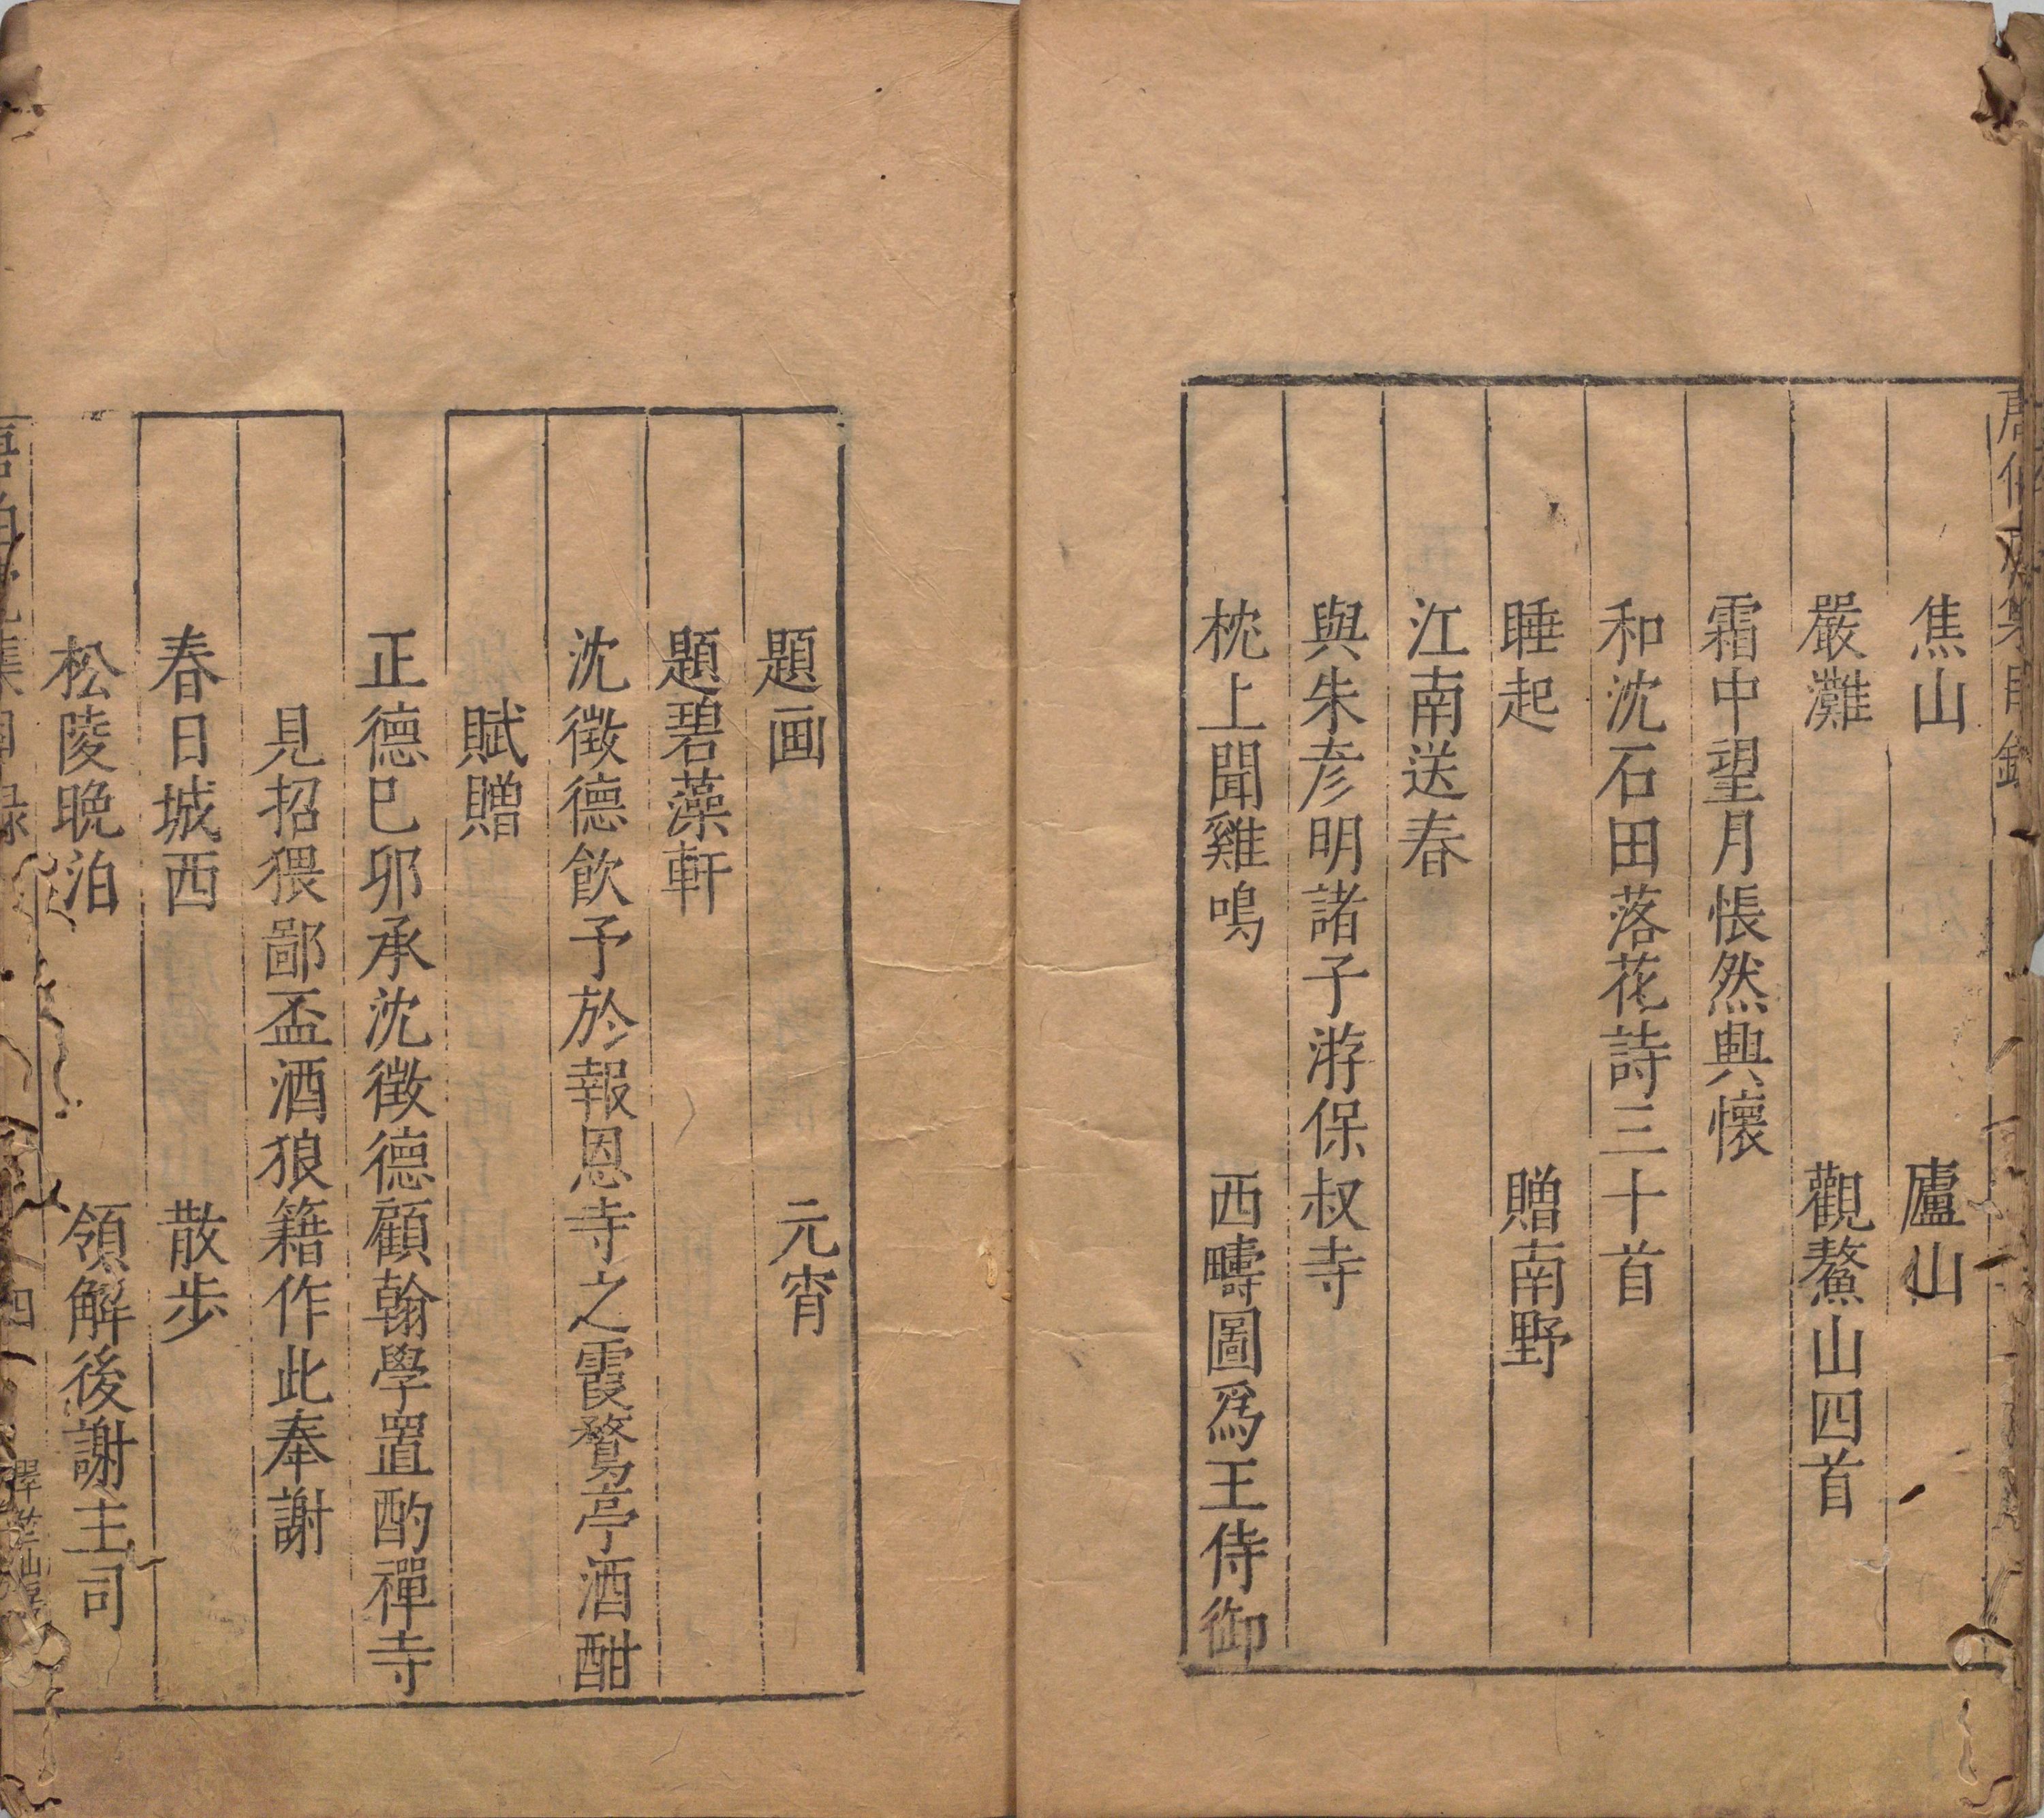 焦山 廬山
嚴灘 觀鰲山四首
霜中望月悵然興懷
和沈石田落花詩三十首
睡起 贈南野
江南送春
與朱彥明諸子游保叔寺
枕上聞雞鳴 西疇圖爲王侍御
題画 元宵
題碧藻軒
沈徵德飲予於報恩寺之霞鶩亭酒酣
賦贈
正德巳卯承沈徵德顧翰學置酌禪寺
見招猥鄙盃酒狼籍作此奉謝
春日城西 散步
松陵晚泊 領解後謝主司
集目録
四